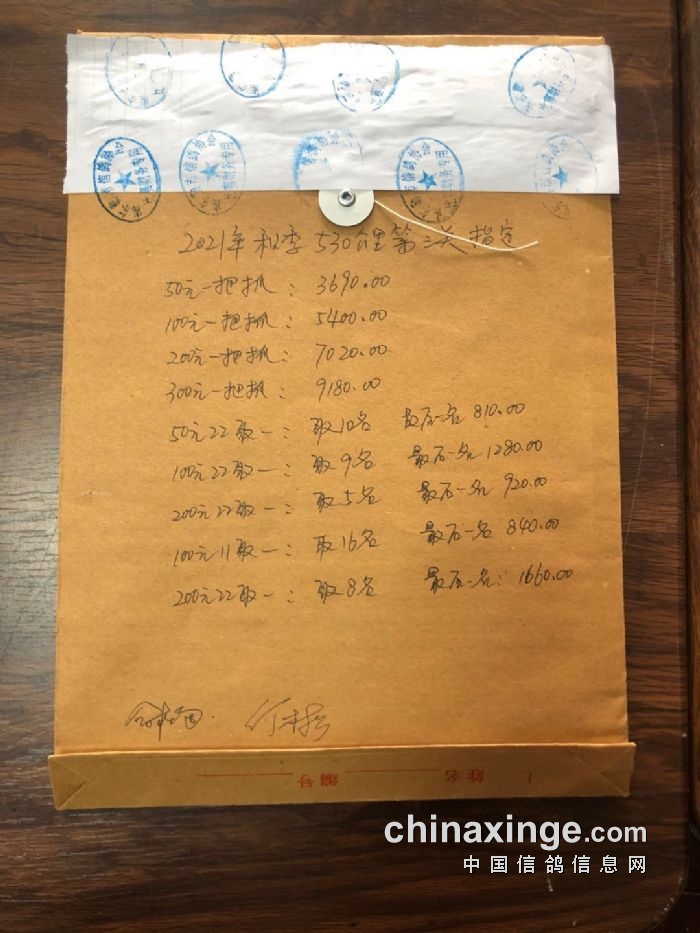 2021年秋季530公里第二关指定
50元一把抓：3690.00
100元一把抓：5400.00
200元一把抓：7020.00
300元一把抓：9180.00
50元22取一：取10名 最后一名 810.00
100元22取一：取9名 最后一名 1280.00
200元22取一：取5名 最后一名 920.00
100元11取一：取16名 最后一名 840.00
200元22取一：取8名 最后一名：1660.00
姓名 编号
chinaxinge.com
中国信鸽信息网